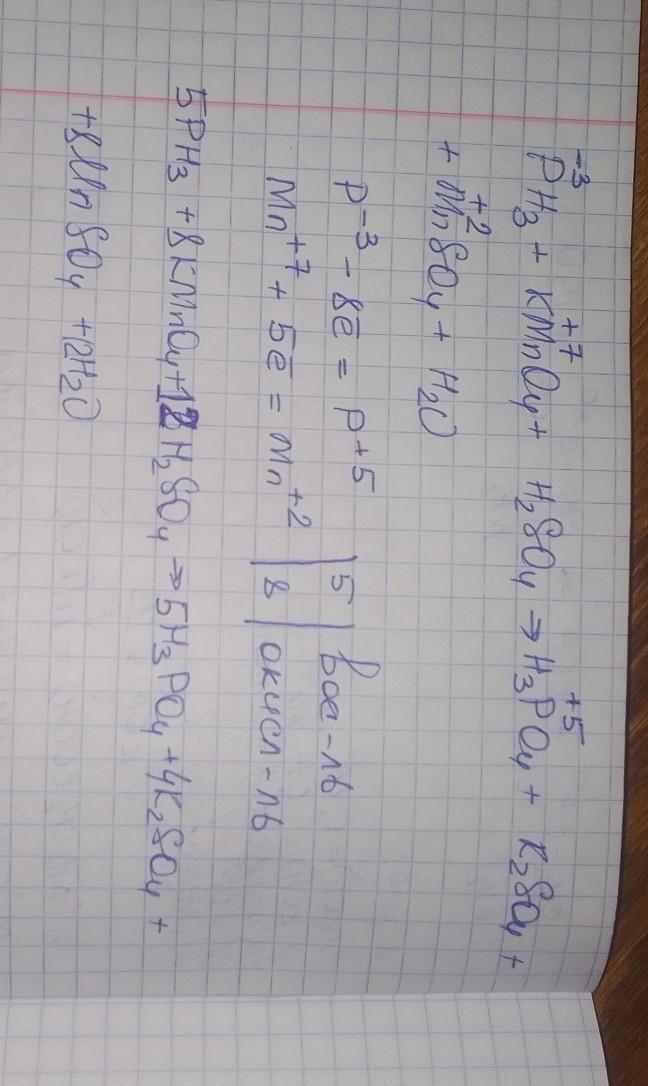 -3 +7 +5
PH₃ + KMnO₄ + H₂SO₄ → H₃PO₄ + K₂SO₄ +
+2
+ MnSO₄ + H₂O
P⁻³ - 8ē = P⁺⁵ | 5 | вос-ль
Mn⁺⁷ + 5ē = Mn⁺² | 8 | окисл-ль
5PH₃ + 8KMnO₄ + 12H₂SO₄ → 5H₃PO₄ + 4K₂SO₄ +
+ 8MnSO₄ + 12H₂O